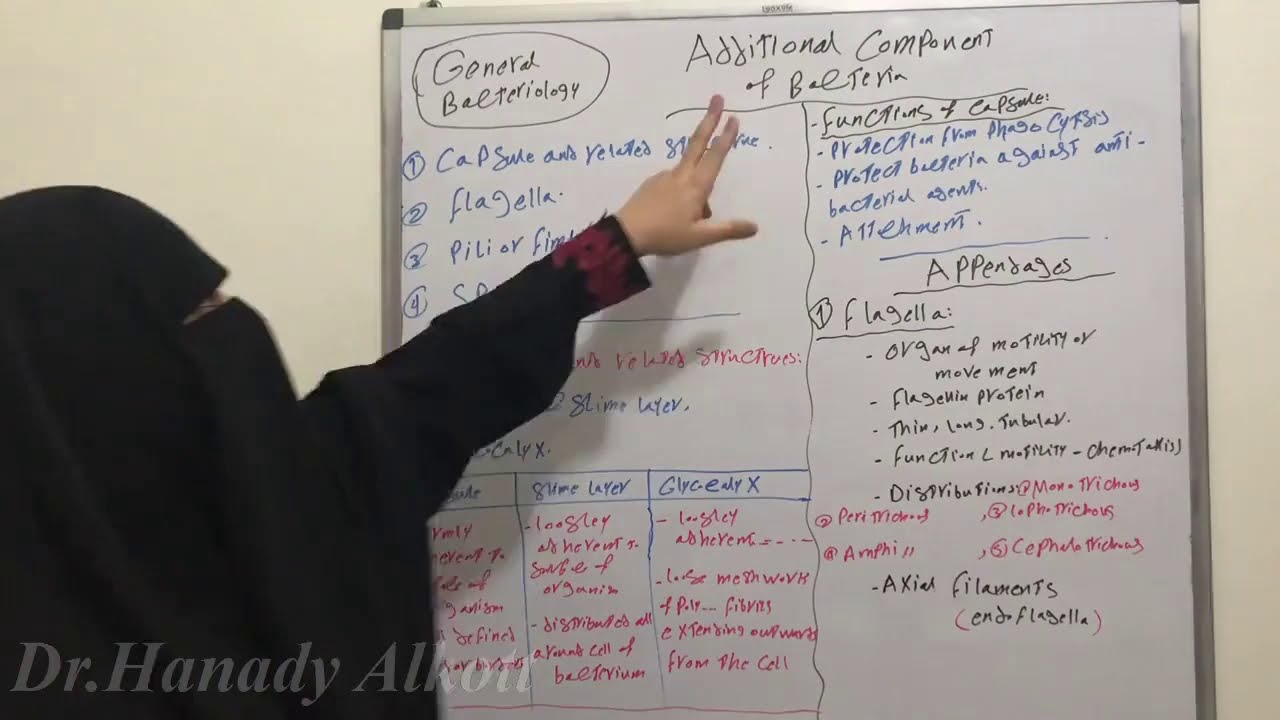 General
Bacteriology
Additional Component
of Bacteria
① Capsule and related
② flagella.
③ Pili or
④
related structrues:
& Slime layer.
calyx.
Slime layer
Glycealyx
- loosley
adherent to
surface of
organism
- distributed all
around cell of
bacterium
- loosley
adherent = - - -
- loose meshwork
of Poly--- fibrils
extending outwards
from the cell
- functions of capsule:
- Protection from Phagocytsis
- Protect bacteria against anti-
bacterial agents.
- Attchment.
Appendages
① flagella:
- organ of motility or
movement
- flagellin protein
- Thin, long, tubular.
- function < motility - chemotaxis)
- Distributions: ① Monotrichous
② Peritrichous , ③ lophotrichous
④ Amphi 11 , ⑤ Cephalotrichous
- Axial filaments
(endoflagella)
Dr.Hanady Alkott